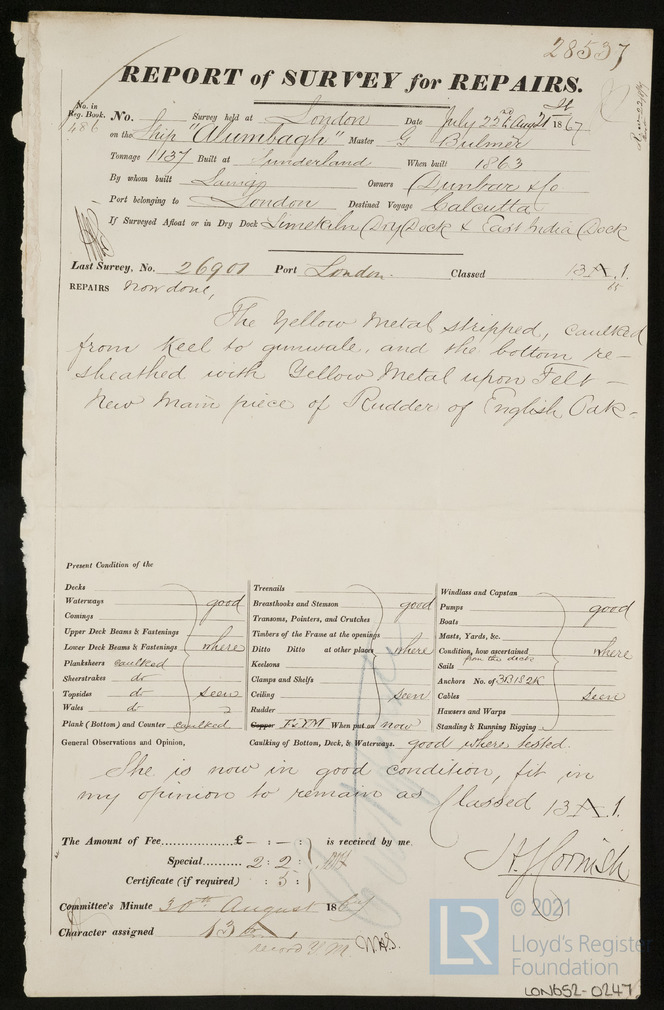 28537
REPORT of SURVEY for REPAIRS.
No. in Reg. Book. 486 No. Survey held at London Date July 22nd & Augt 21st 1867
on the Ship "Alumbagh" Master G Bulmer
Tonnage 1137 Built at Sunderland When built 1863
By whom built Laing Owners Dunbar & Co
Port belonging to London Destined Voyage Calcutta
If Surveyed Afloat or in Dry Dock Limekiln Dry Dock & East India Dock
Last Survey, No. 26901 Port London. Classed 13 A 1.
REPAIRS Now done,
The Yellow Metal stripped, caulked
from Keel to gunwale, and the bottom re-
sheathed with Yellow Metal upon Felt -
New Main piece of Rudder of English Oak -
Present Condition of the
Decks
Waterways
Comings
Upper Deck Beams & Fastenings
Lower Deck Beams & Fastenings
good where seen
Planksheers caulked
Sheerstrakes do
Topsides do
Wales do
Plank (Bottom) and Counter caulked
Treenails
Breasthooks and Stemson
Transoms, Pointers, and Crutches
Timbers of the Frame at the openings
Ditto Ditto at other places
Keelsons
Clamps and Shelfs
Ceiling
Rudder
good where seen
Copper F&YM When put on now
Windlass and Capstan
Pumps
Boats
Masts, Yards, &c.
Condition, how ascertained from the deck
Sails
Anchors No. of 3B1S2K
Cables
Hawsers and Warps
Standing & Running Rigging
good where seen
General Observations and Opinion, Caulking of Bottom, Deck, & Waterways. good where tested.
She is now in good condition, fit in
my opinion to remain as Classed 13 A 1.
The Amount of Fee £ - : - : is received by me,
Special 2 : 2 :
Certificate (if required) : 5 :
J H Cornish
Committee's Minute 30th August 1867
Character assigned 13 A 1
record YM W.A.S.
© 2021
LR
Lloyd's Register
Foundation
LON652-0247